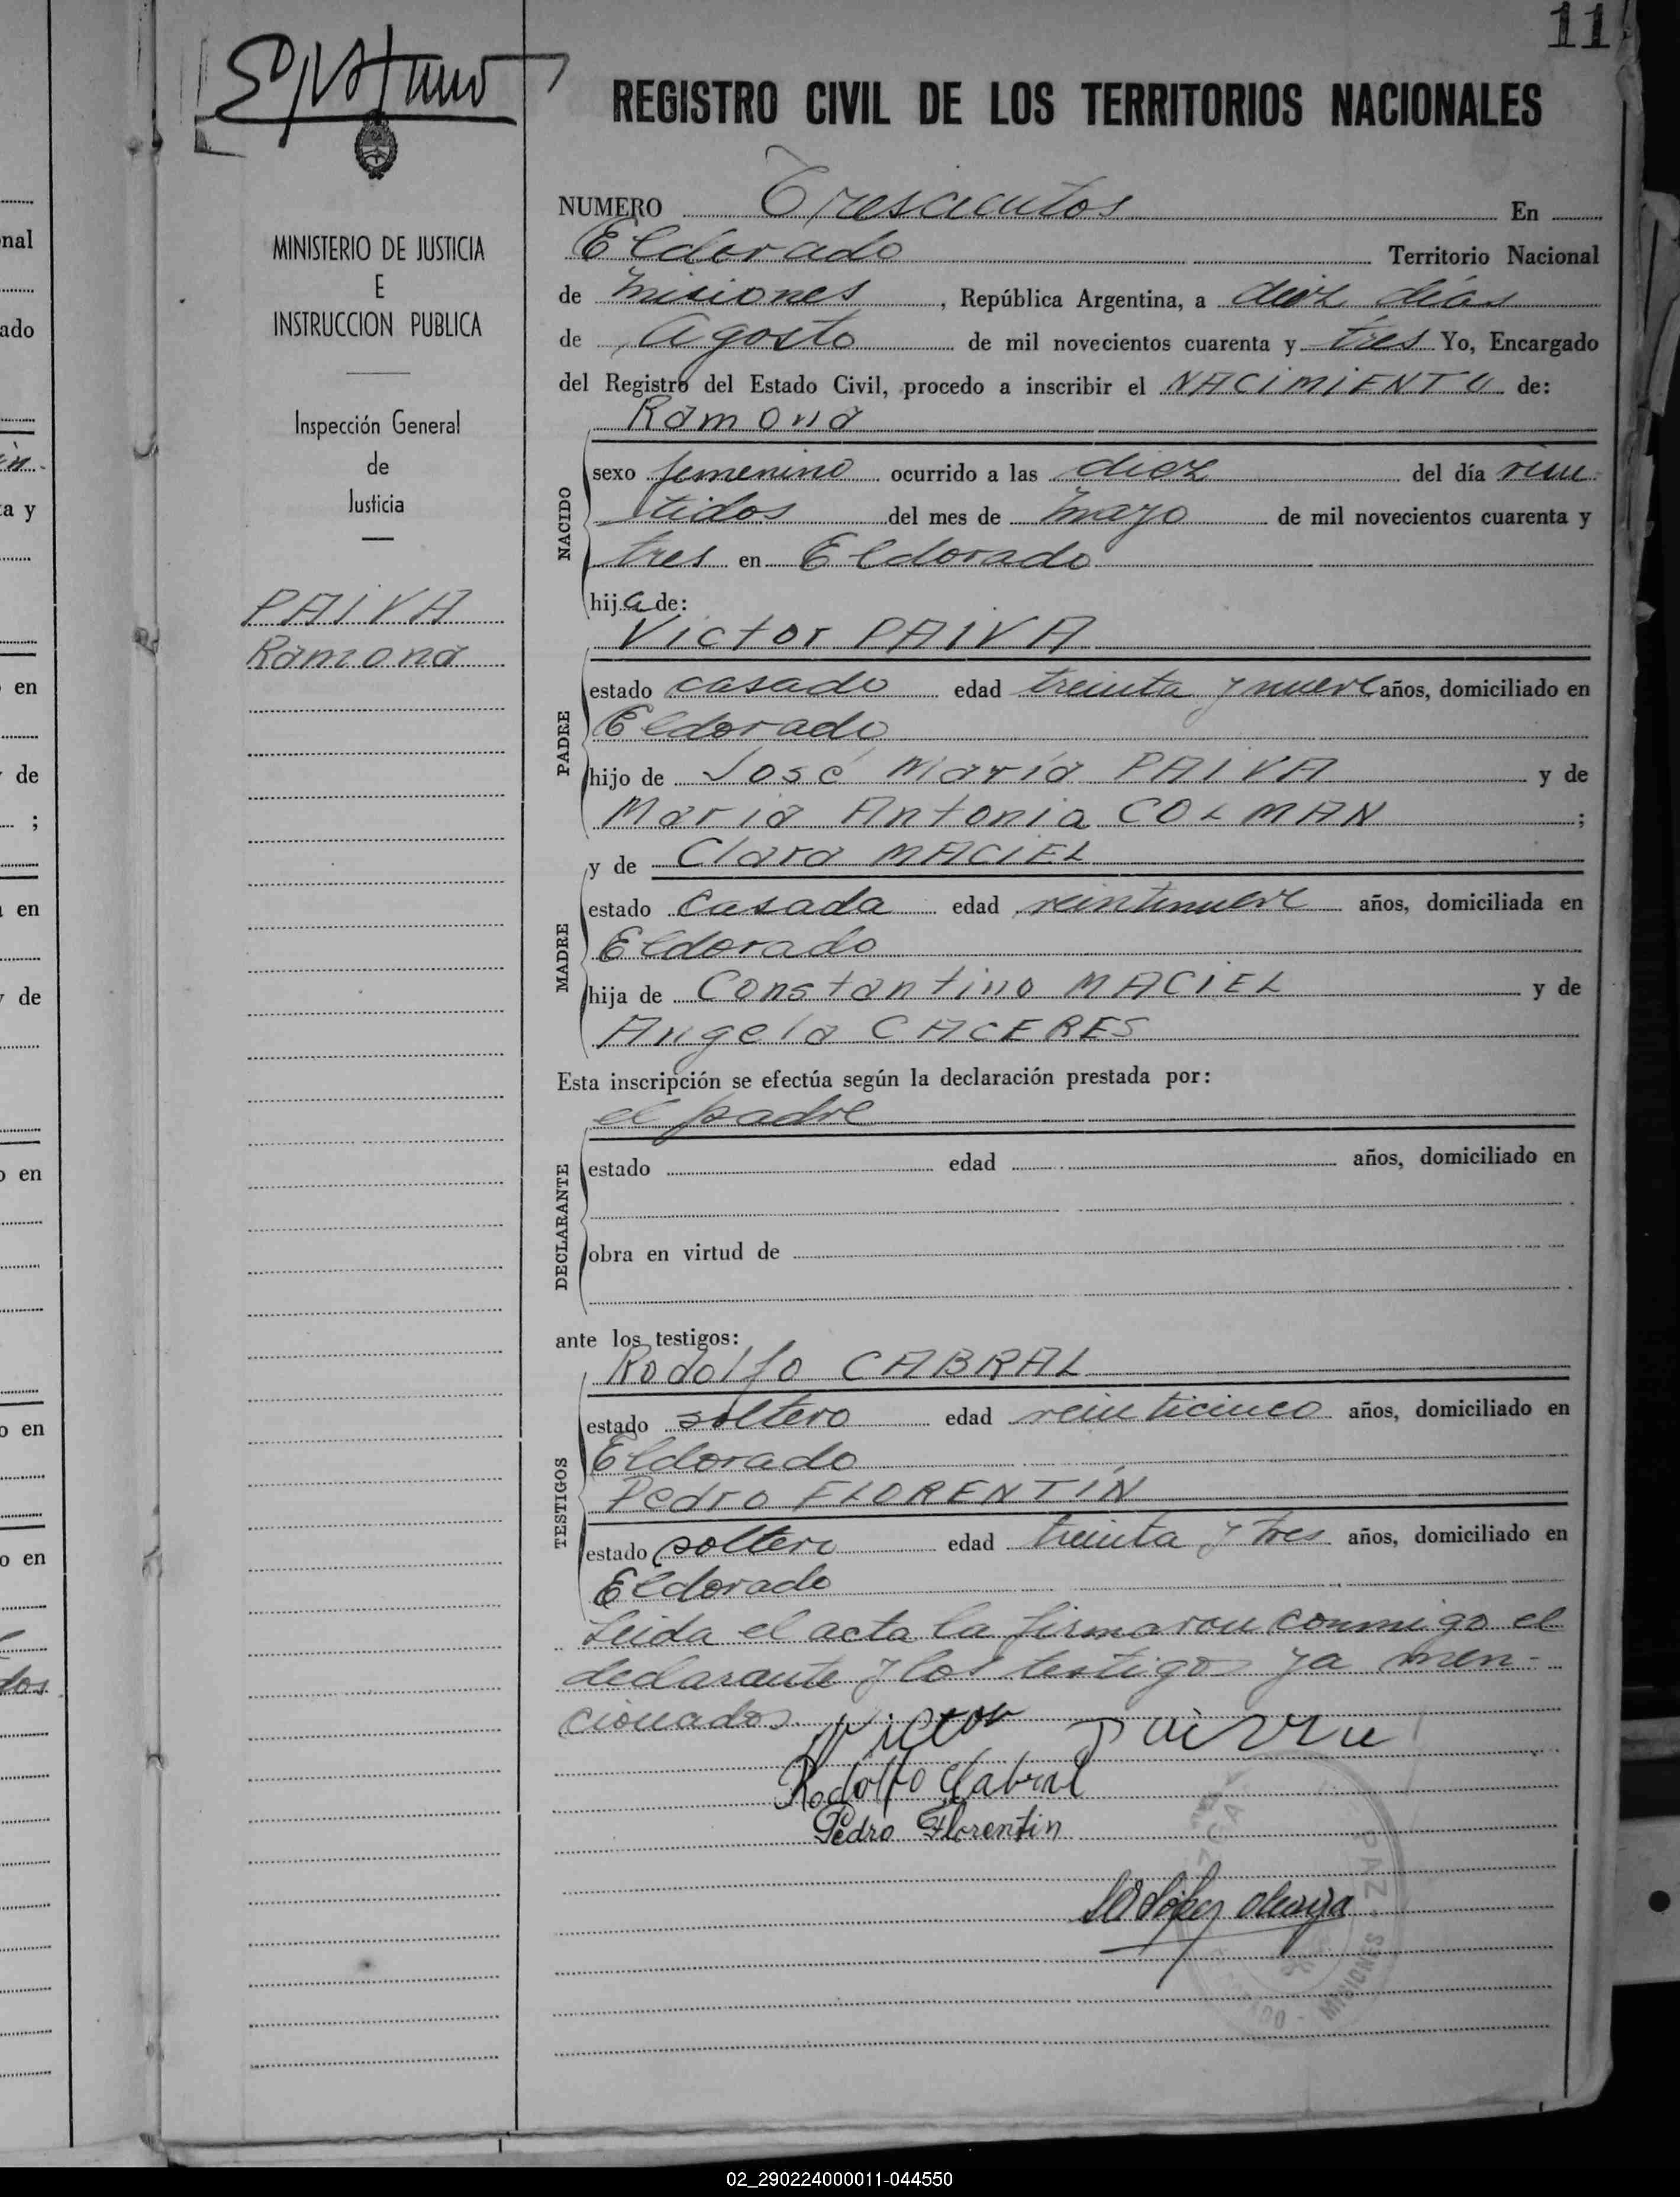 11
REGISTRO CIVIL DE LOS TERRITORIOS NACIONALES
MINISTERIO DE JUSTICIA
E
INSTRUCCION PUBLICA
Inspección General
de
Justicia
PAIVA
Ramona
NUMERO Trescientos En
Eldorado Territorio Nacional
de Misiones, República Argentina, a diez días
de Agosto de mil novecientos cuarenta y tres Yo, Encargado
del Registro del Estado Civil, procedo a inscribir el NACIMIENTO de:
Ramona
NACIDO
sexo femenino ocurrido a las diez del día vein
tidos del mes de Mayo de mil novecientos cuarenta y
tres en Eldorado
hija de:
Victor PAIVA
PADRE
estado casado edad treinta y nueve años, domiciliado en
Eldorado
hijo de José María PAIVA y de
María Antonia COLMAN ;
y de Clara MACIEL
MADRE
estado casada edad veintinueve años, domiciliada en
Eldorado
hija de Constantino MACIEL y de
Angela CACERES
Esta inscripción se efectúa según la declaración prestada por:
el padre
DECLARANTE
estado edad años, domiciliado en
obra en virtud de
ante los testigos:
Rodolfo CABRAL
TESTIGOS
estado soltero edad veinticinco años, domiciliado en
Eldorado
Pedro FLORENTÍN
estado soltero edad treinta y tres años, domiciliado en
Eldorado
Leida el acta la firmaron conmigo el
declarante y los testigos ya men-
cionados.
Victor Paiva
Rodolfo Cabral
Pedro Florentin
PAZ
MISIONES
nal
ado
ta y
en
de
;
en
de
en
en
en
02_290224000011-044550